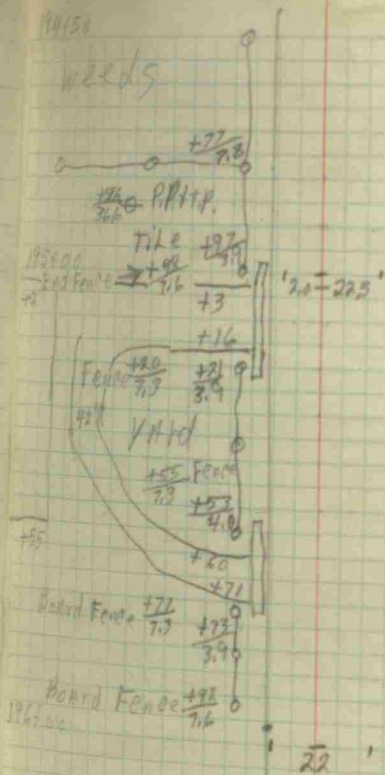 194+50
weeds
+77/7.8
+96/36.6 P.P.+T.P.
Tile +97
195+00
End Fence +99/7.6
+3
20-22.5'
+16
Fence +20/7.3 +21/3.9
42'
Yard
+55/7.3 Fence
+53/4.0
+55
+60
+71
Board Fence +77/7.3 +73/3.9
Board Fence +98/7.6
196+00
22'